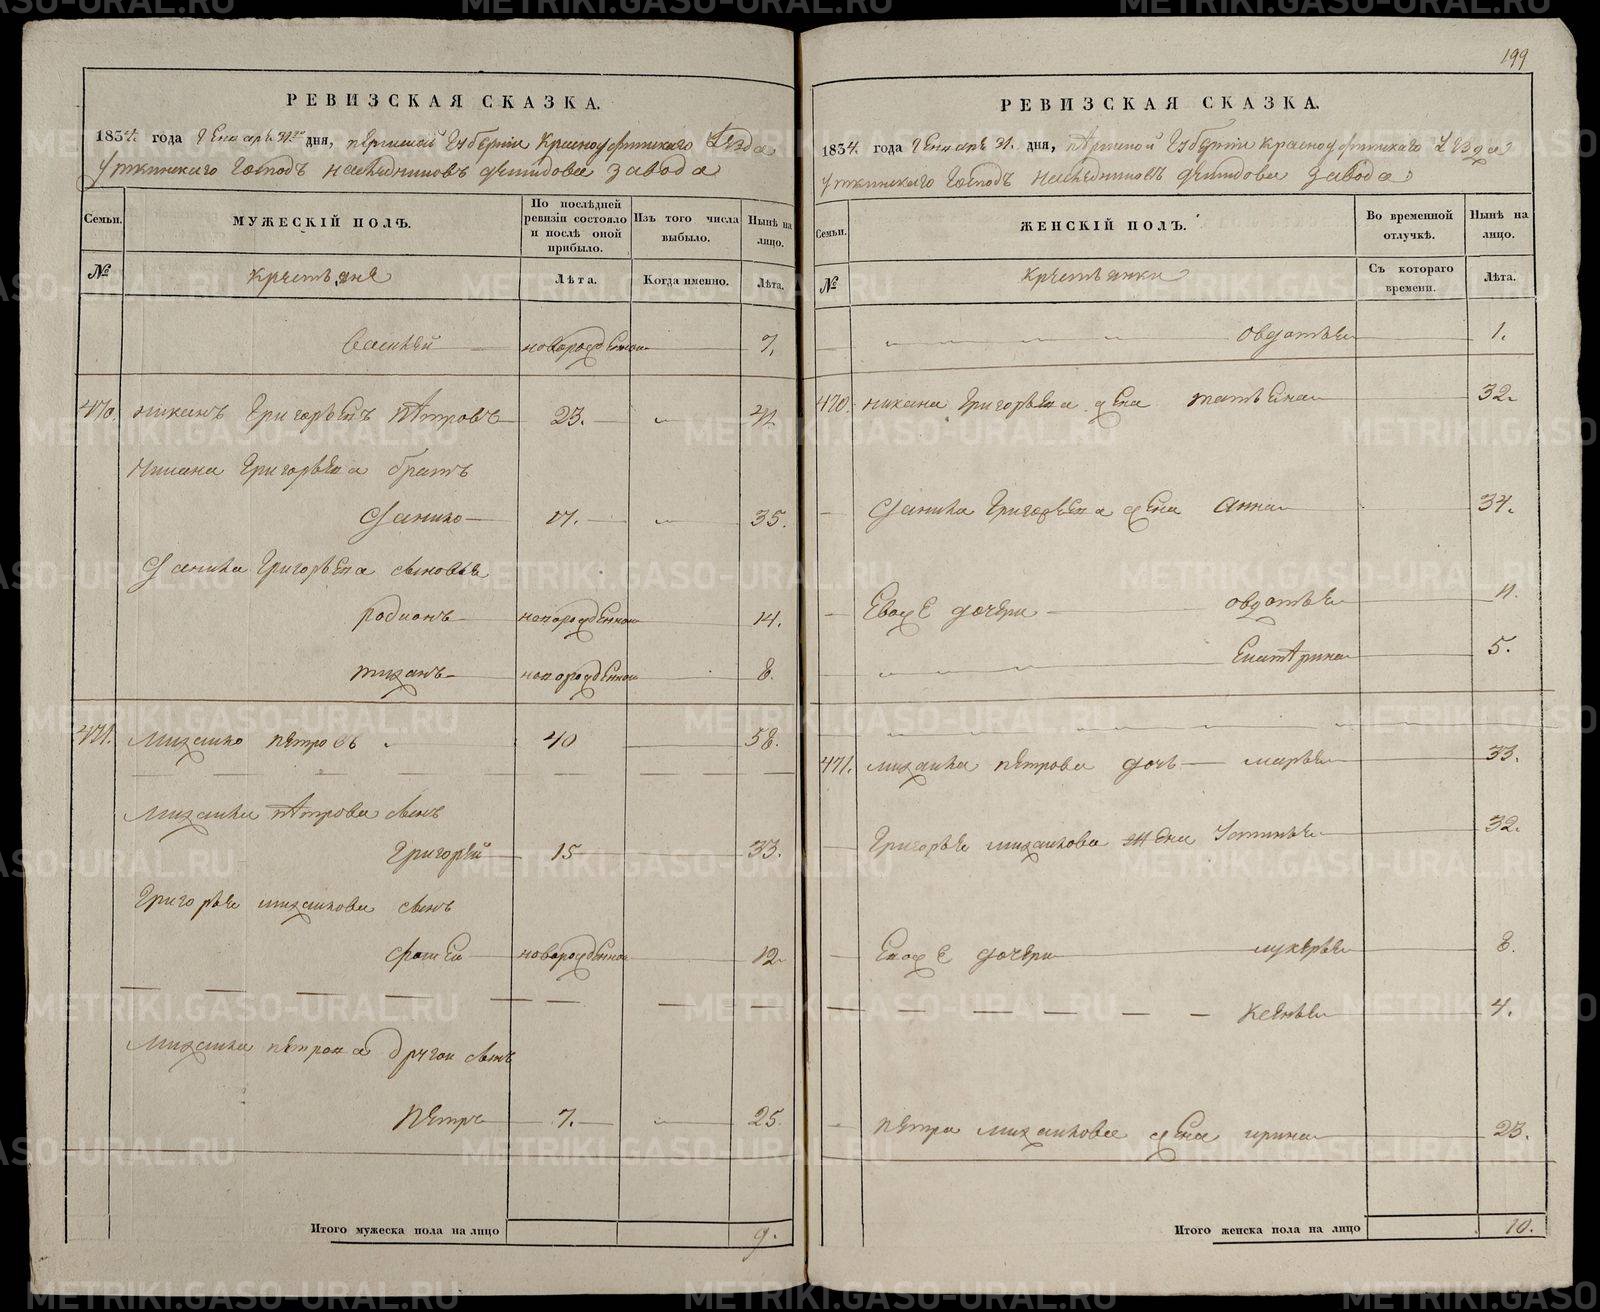 199
РЕВИЗСКАЯ СКАЗКА.
1834. года Генваря 31го дня, пермской Губерніи Красноуфимскаго Уезда
Уткинскаго Господъ наследниковъ демидова завода
Семьи. МУЖЕСКІЙ ПОЛЪ. По послѣдней ревизіи состояло и послѣ оной прибыло. Изъ того числа выбыло. Нынѣ на лицо.
№ крестьяня Лѣта. Когда именно. Лѣта.
Василей новорожденной 7.
470. никанъ Григорьевъ петровъ 23. 41
Никана Григорьева братъ
Данило 17. 35.
Данила Григорьева сыновья
родионъ новорожденной 14.
тиханъ новорожденной 8.
471. михайло петровъ 40 58.
михайла петрова сынъ
Григорей 15 33.
Григорья михайлова сынъ
фатей новорожденной 12
михайла петрова другой сынъ
петръ 7. 25.
Итого мужеска пола на лицо 9.
РЕВИЗСКАЯ СКАЗКА.
1834. года Генваря 31. дня, пермской Губерніи красноуфимскаго Уезда
Уткинскаго Господъ наследниковъ демидова завода
Семьи. ЖЕНСКІЙ ПОЛЪ. Во временной отлучкѣ. Нынѣ на лицо.
№ крестьянки Съ котораго времени. Лѣта.
овдотья 1.
470. никана Григорьева жена татьяна 32.
Данила Григорьева жена анна 34.
Евоже дочери овдотья 11.
Екатерина 5.
471. михайла петрова дочь марья 33.
Григорья михайлова жена Устинья 32.
Евоже дочери лукерья 8.
ксенья 4.
петра михайлова жена ирина 23.
Итого женска пола на лицо 10.
METRIKI.GASO-URAL.RU